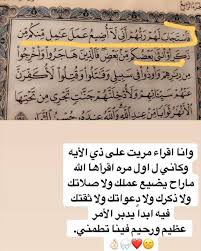 فَٱسْتَجَابَ لَهُمْ رَبُّهُمْ أَنِّي لَآ أُضِيعُ عَمَلَ عَٰمِلٍ مِّنكُم مِّن
ذَكَرٍ أَوْ أُنثَىٰ بَعْضُكُم مِّنۢ بَعْضٍ فَٱلَّذِينَ هَاجَرُوا۟ وَأُخْرِجُوا۟
مِن دِيَٰرِهِمْ وَأُوذُوا۟ فِي سَبِيلِي وَقَٰتَلُوا۟ وَقُتِلُوا۟ لَأُكَفِّرَنَّ
عَنْهُمْ سَيِّـَٔاتِهِمْ وَلَأُدْخِلَنَّهُمْ جَنَّٰتٍ تَجْرِي مِن تَحْتِهَا
وانا اقراء مريت على ذي الأيه
وكاني ل اول مره اقرأها الله
ماراح يضيع عملك ولا صلاتك
ولا ذكرك ولا دعواتك ولا ثقتك
فيه ابدأ يدبر الأمر
عظيم ورحيم فينا تطمني.